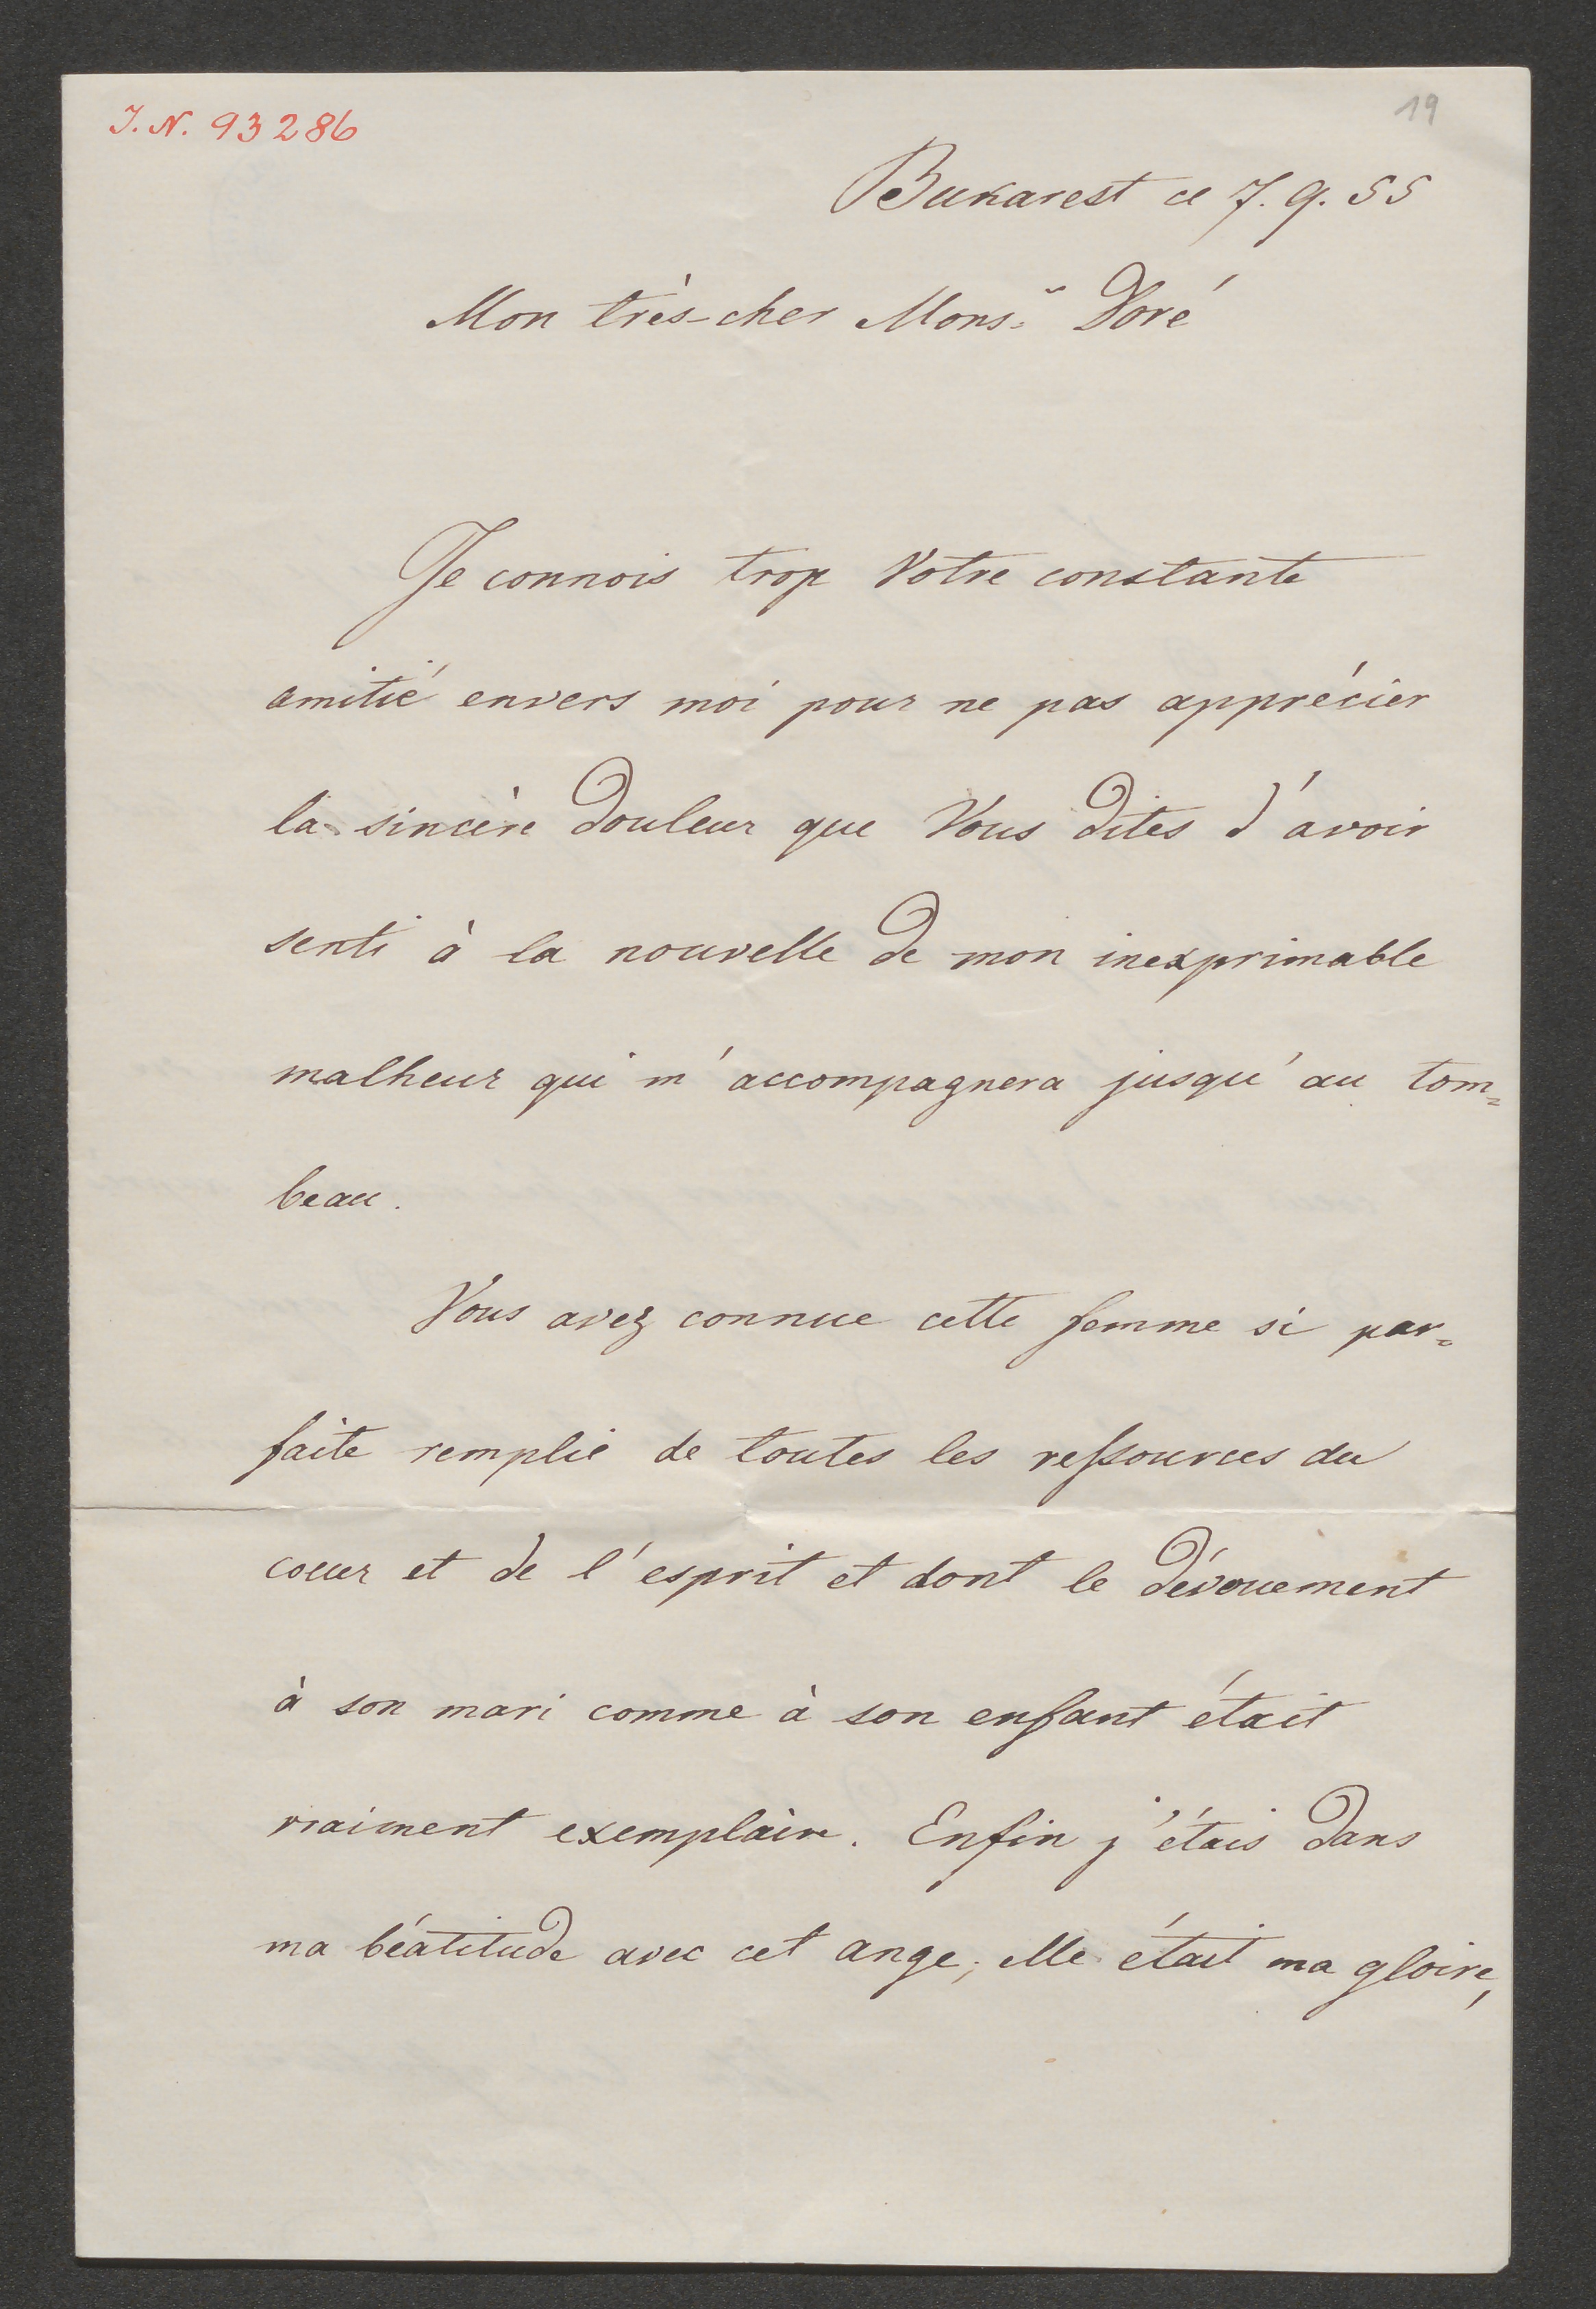 J. N. 93286
19
Bukarest ce 7. 9. 55
Mon très-cher Mons.r Doré
Je connois trop Votre constante
amitié envers moi pour ne pas apprécier
la sincère douleur que Vous dites d'avoir
senti à la nouvelle de mon inexprimable
malheur qui m'accompagnera jusqu'au tom=
beau.
Vous avez connue cette femme si par=
faite remplie de toutes les ressources du
coeur et de l'esprit et dont le dévouement
à son mari comme à son enfant était
vraiment exemplaire. Enfin j'étais dans
ma béatitude avec cet ange; elle était ma gloire,